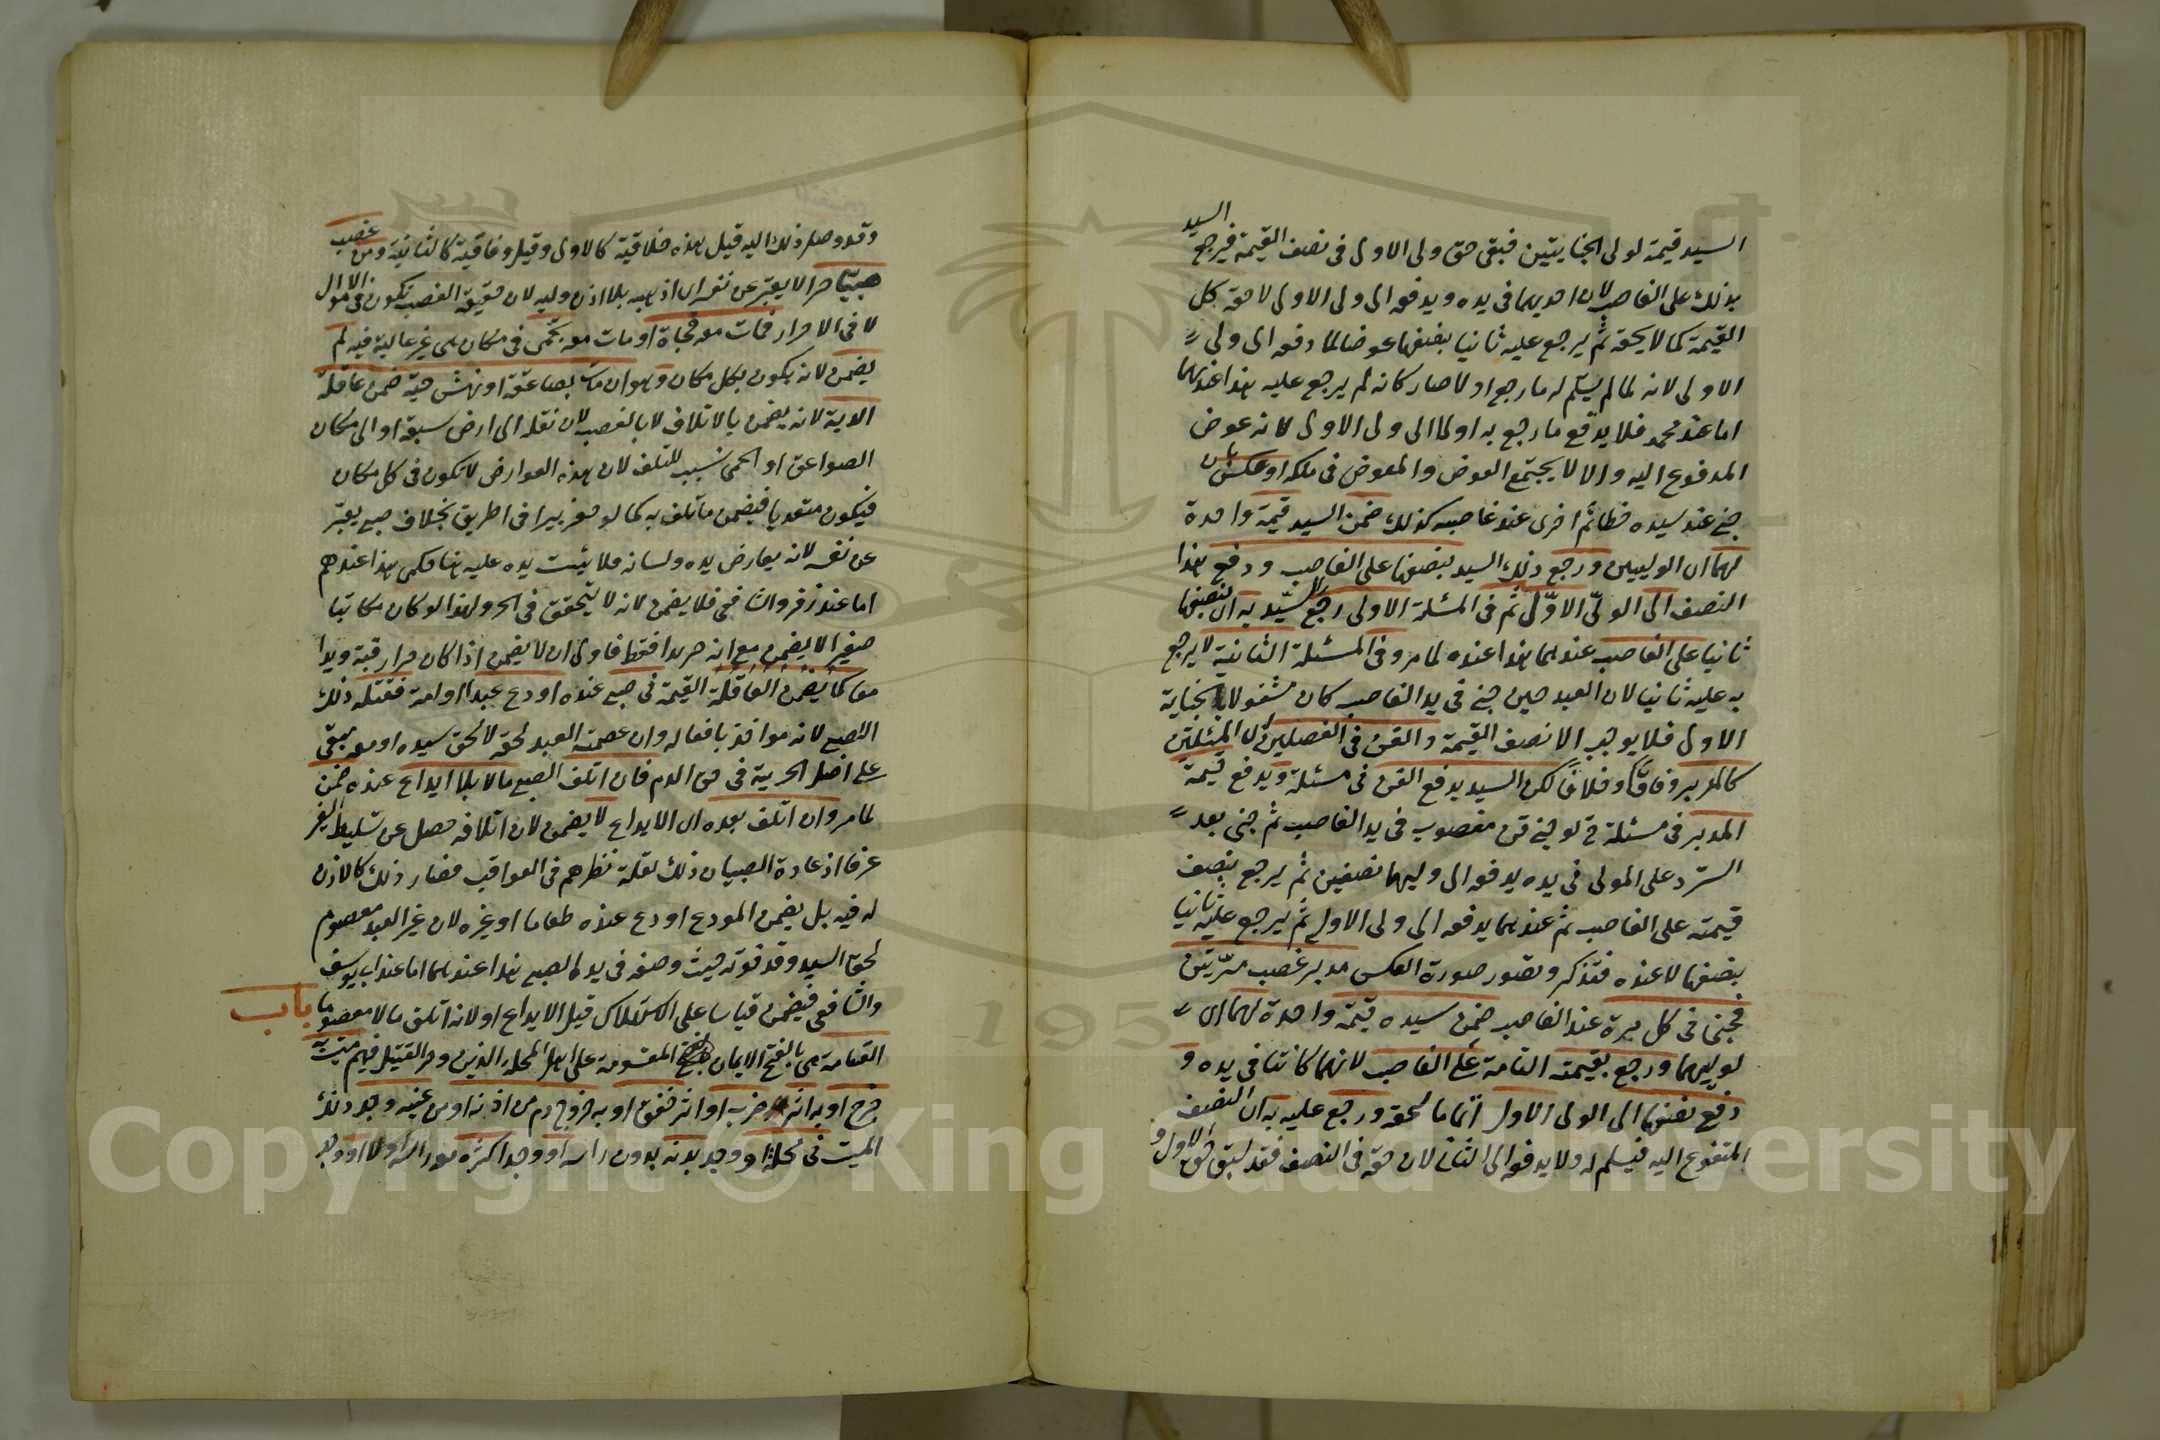 السيد قيمة لولى الجنايتين فبقى حق ولى الاولى فى نصف القيمة فيرجع السيد
بذلك على الغاصب لان احديهما فى يده ويدفعه الى ولى الاولى لاحقه كل
القيمة كما لا يحقه ثم يرجع عليه ثانيا بنصفها عوضا لما دفعه الى ولى
الاولى لانه لما لم يسلم له ما رجع اولا صار كانه لم يرجع عليه هذا عندهما
اما عند محمد فلا يدفع ما رجع به اولا الى ولى الاولى لانه عوض
المدفوع اليه والا لا يجتمع العوض والمعوض فى ملكه او عكس بان
جنى عند سيده خطا ثم اخرى عند غاصبه كذلك ضمن السيد قيمة واحدة
لهما اى الوليين ورجع ذلك السيد بنصفها على الغاصب ودفع هذا
النصف الى الولى الاول ثم فى المسئلة الاولى رجع السيد به اى بنصفها
ثانيا على الغاصب عندهما هذا عنده لما مر وفى المسئلة الثانية لا يرجع
به عليه ثانيا لان العبد حين جنى فى يد الغاصب كان مشغولا بجناية
الاولى فلا يوجب الا نصف القيمة والقن فى الفصلين اى المسئلتين
كالمدبر وفاقا وخلافا لكن السيد يدفع القن فى مسئلة ويدفع قيمة
المدبر فى مسئلة حتى لو جنى قن مغصوب فى يد الغاصب ثم جنى بعد
الرد على المولى فى يده يدفعه الى وليهما نصفين ثم يرجع بنصف
قيمته على الغاصب ثم عندهما يدفعه الى ولى الاولى ثم يرجع عليه ثانيا
بنصفها لا عنده فتذكر وتصور صورة العكس مدبر غصب مرتين
فجنى فى كل مرة عند الغاصب ضمن سيده قيمة واحدة لهما اى
لوليهما ورجع بقيمته التامة على الغاصب لانهما كانتا فى يده و
دفع نصفها الى الولى الاول اتماما لحقه ورجع عليه به اى النصف
المدفوع اليه فيسلم له ولا يدفعه الى الثانى لان حقه فى النصف فقد لسبق حق الاول و
وقد وصل ذلك اليه قيل هذه خلافية كالاولى وقيل وفاقية كالثانية ومن غصب
صبيا حرا لا يعبر عن نفسه اى اذهبه بلا اذن وليه لان حقيقة الغصب تكون فى الاموال
لا فى الاحرار فمات معه فجاة او مات معه بحمى فى مكان هى غير عالية فيه لم
يضمن لانه يكون بكل مكان وهو ان مات بصاعقة او نهش حية ضمن عاقلة
الدية لانه يضمن بالاتلاف لا بالغصب لان نقله الى ارض سبعة او الى مكان
الصواعق او الحمى تسبب للتلف لان هذه العوارض لا تكون فى كل مكان
فيكون متعديا فيضمن ما تلف به كما لو حفر بيرا فى الطريق بخلاف صبى يعبر
عن نفسه لانه يعارض يده ولسانه فلا يثبت يده عليه هنا حكمى هذا عندهم
اما عند زفر والشافعى فلا يضمن لانه لا يتحقق فى الحر ولهذا لو كان مكاتبا
صغيرا لا يضمن مع انه حر يدا فقط فاولى ان لا يضمن اذا كان حرا رقبة ويدا
معا كما يضمن العاقلة القيمة فى صبى عنده اودع عبدا او امة فقتله ذلك
الصبى لانه مواخذ بافعاله وان عصمة العبد لحقه لا لحق سيده او هو مبقى
على اصل الحرية فى حق الدم فان اتلف الصبى مالا بلا ايداع عنده ضمن
لما مر وان اتلف بعده اى الايداع لا يضمن لان اتلافه حصل عن تسليط الغير
عرفا اذ عادة الصبيان ذلك لقلة نظرهم فى العواقب فصار ذلك كالاذن
له فيه بل يضمن المودع اودع عنده طعاما او غيره لان غير العبد معصوم
لحق السيد وقد فوته حيث وضعه فى يد الصبى هذا عندهما اما عند ابى يوسف
والشافعى فيضمن قياسا على الاستهلاك قبل الايداع اولانه اتلف مالا معصوما باب
القسامة هى بالفتح الايمان المقسومة على اهل المحلة الذين وجد القتيل فيهم ميت به
جرح او به اثر ضرب او اثر خنق او به خروج دم من اذنه او من عينه وجد ذلك
الميت فى محلة او وجد بدنه بدون راسه او وجد اكثره مع راسه ولا او وجد
Copyright © King Saud University
195